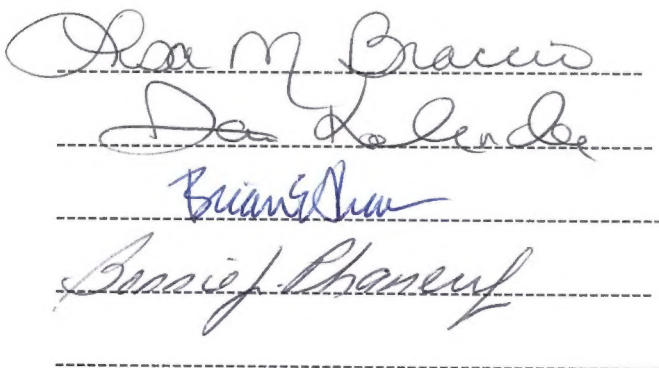 Lisa M Braccio
Dan Kalenda
Brian E Shaw
Bonnie J. Phaneuf